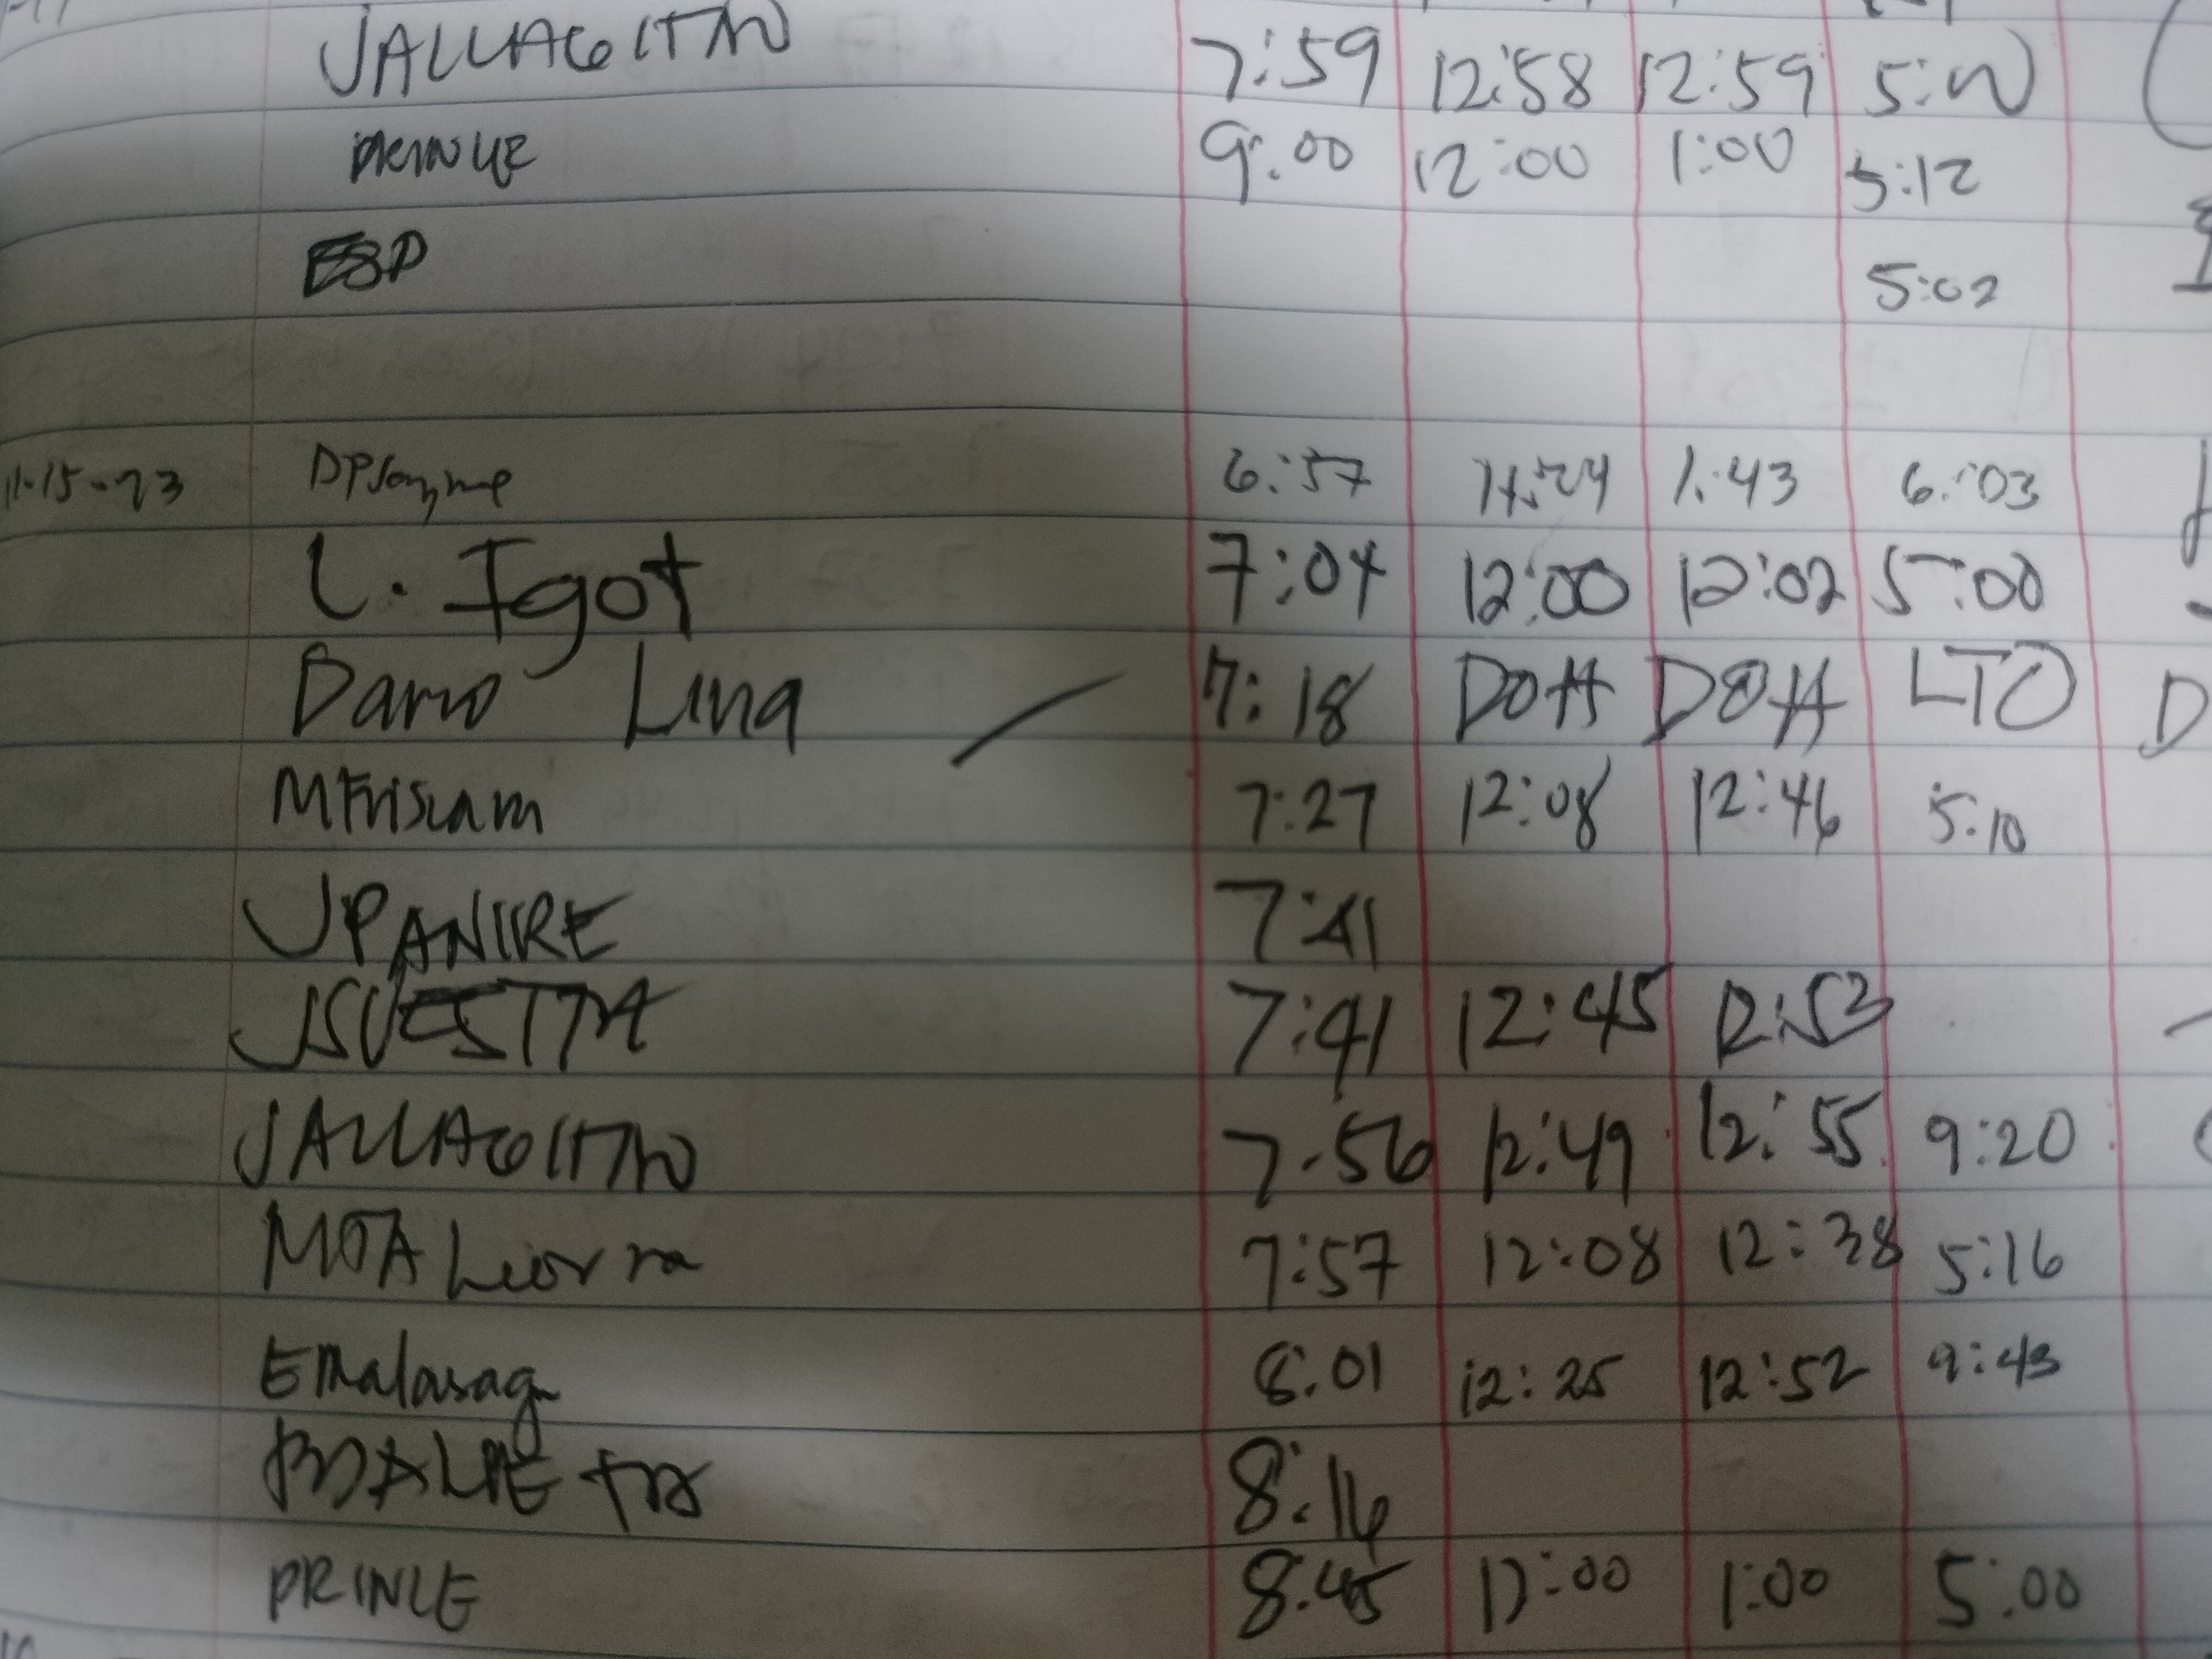 JALLAGOITNO 7:59 12:58 12:59 5:00
PRINCE 9:00 12:00 1:00 5:12
ESP 5:02
11-15-23 6:57 1:43 6:03
L. Igot 7:04 12:00 12:02 5:00
Dano Lina 7:18 DOH DOH LTO D
7:27 12:08 12:46 5:10
JPANIIRE 7:41
7:41 12:45 12:53
7:56 12:49 12:55 9:20
7:57 12:08 12:38 5:16
EMalasag 8:01 12:25 12:52 9:43
8:16
PRINCE 8:45 12:00 1:00 5:00